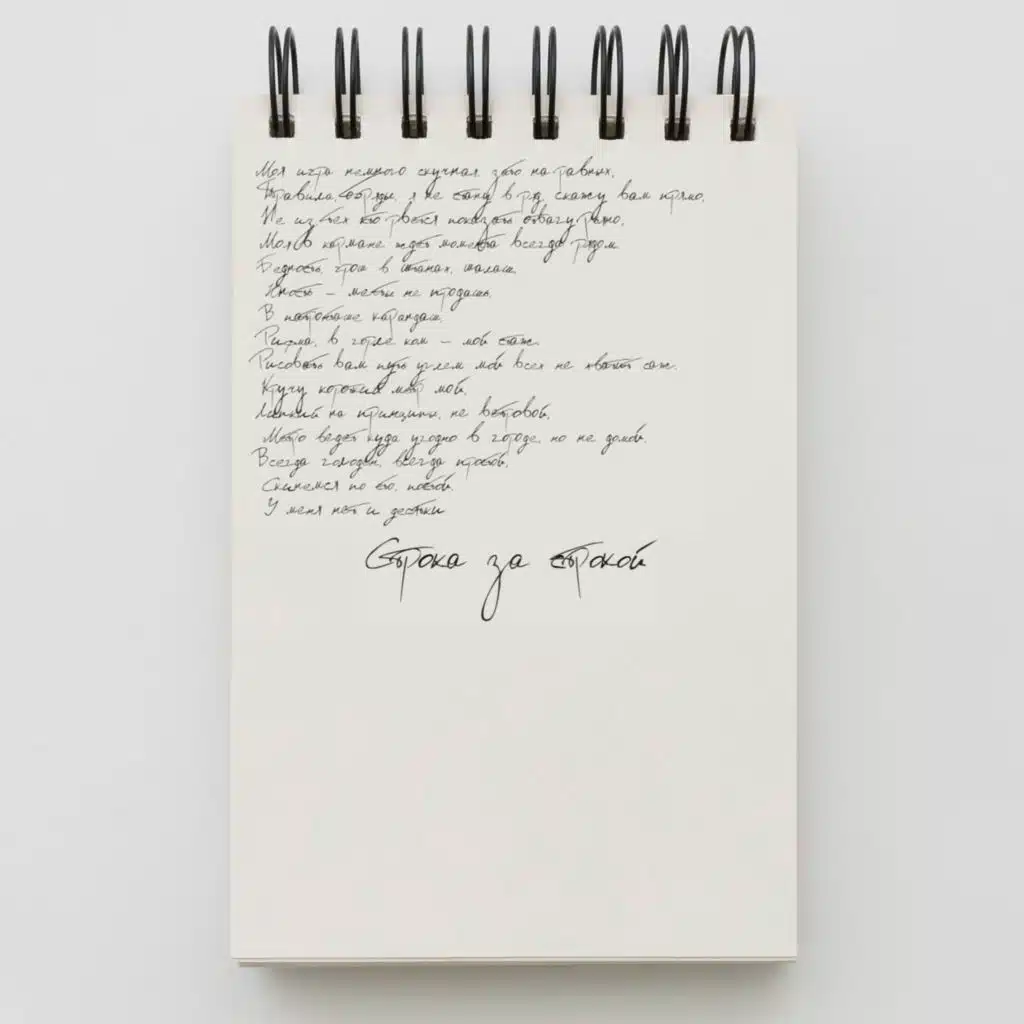 Моя игра немного скучная зато на равных,
Правила, обряды, я не стану в ряд, скажу вам прямо,
Не из тех кто рвется показать отвагу рьяно,
Моя в кармане ждет момента всегда рядом
Бедность, грош в штанах, шалаш,
Юность – мечты не продашь,
В патронташе карандаш,
Рифма, в горле ком – мой стаж,
Рисовать вам путь углем мой всех не хватит саж,
Кручу короткий метр мой,
Липкий на принципы, не ветровой,
Метро ведет куда угодно в городе, но не домой,
Всегда голоден, всегда простой,
Скинемся по сто, постой,
У меня нет и десятки
Строка за строкой